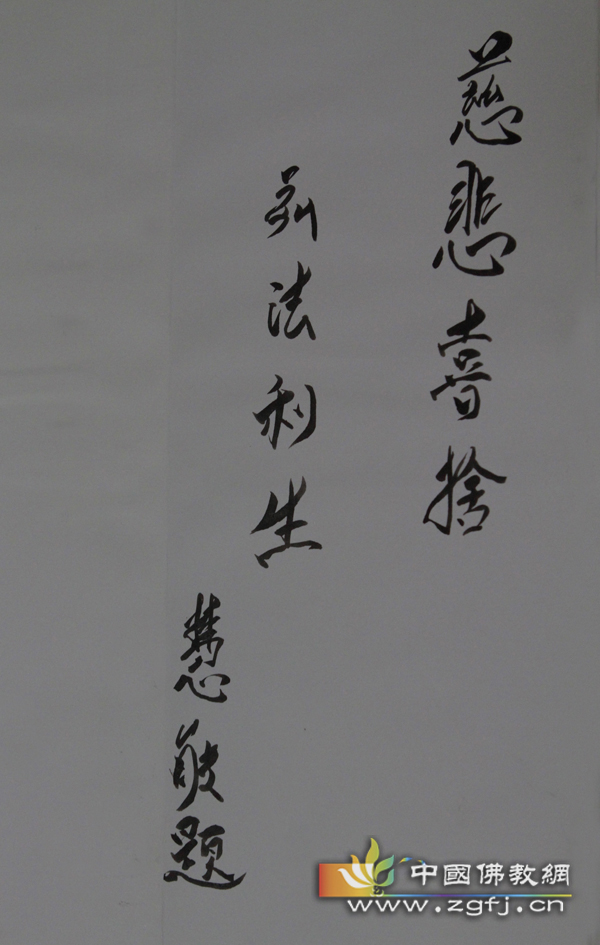 慈悲喜捨
弘法利生
慧題
中國佛教網
www.zgfj.cn